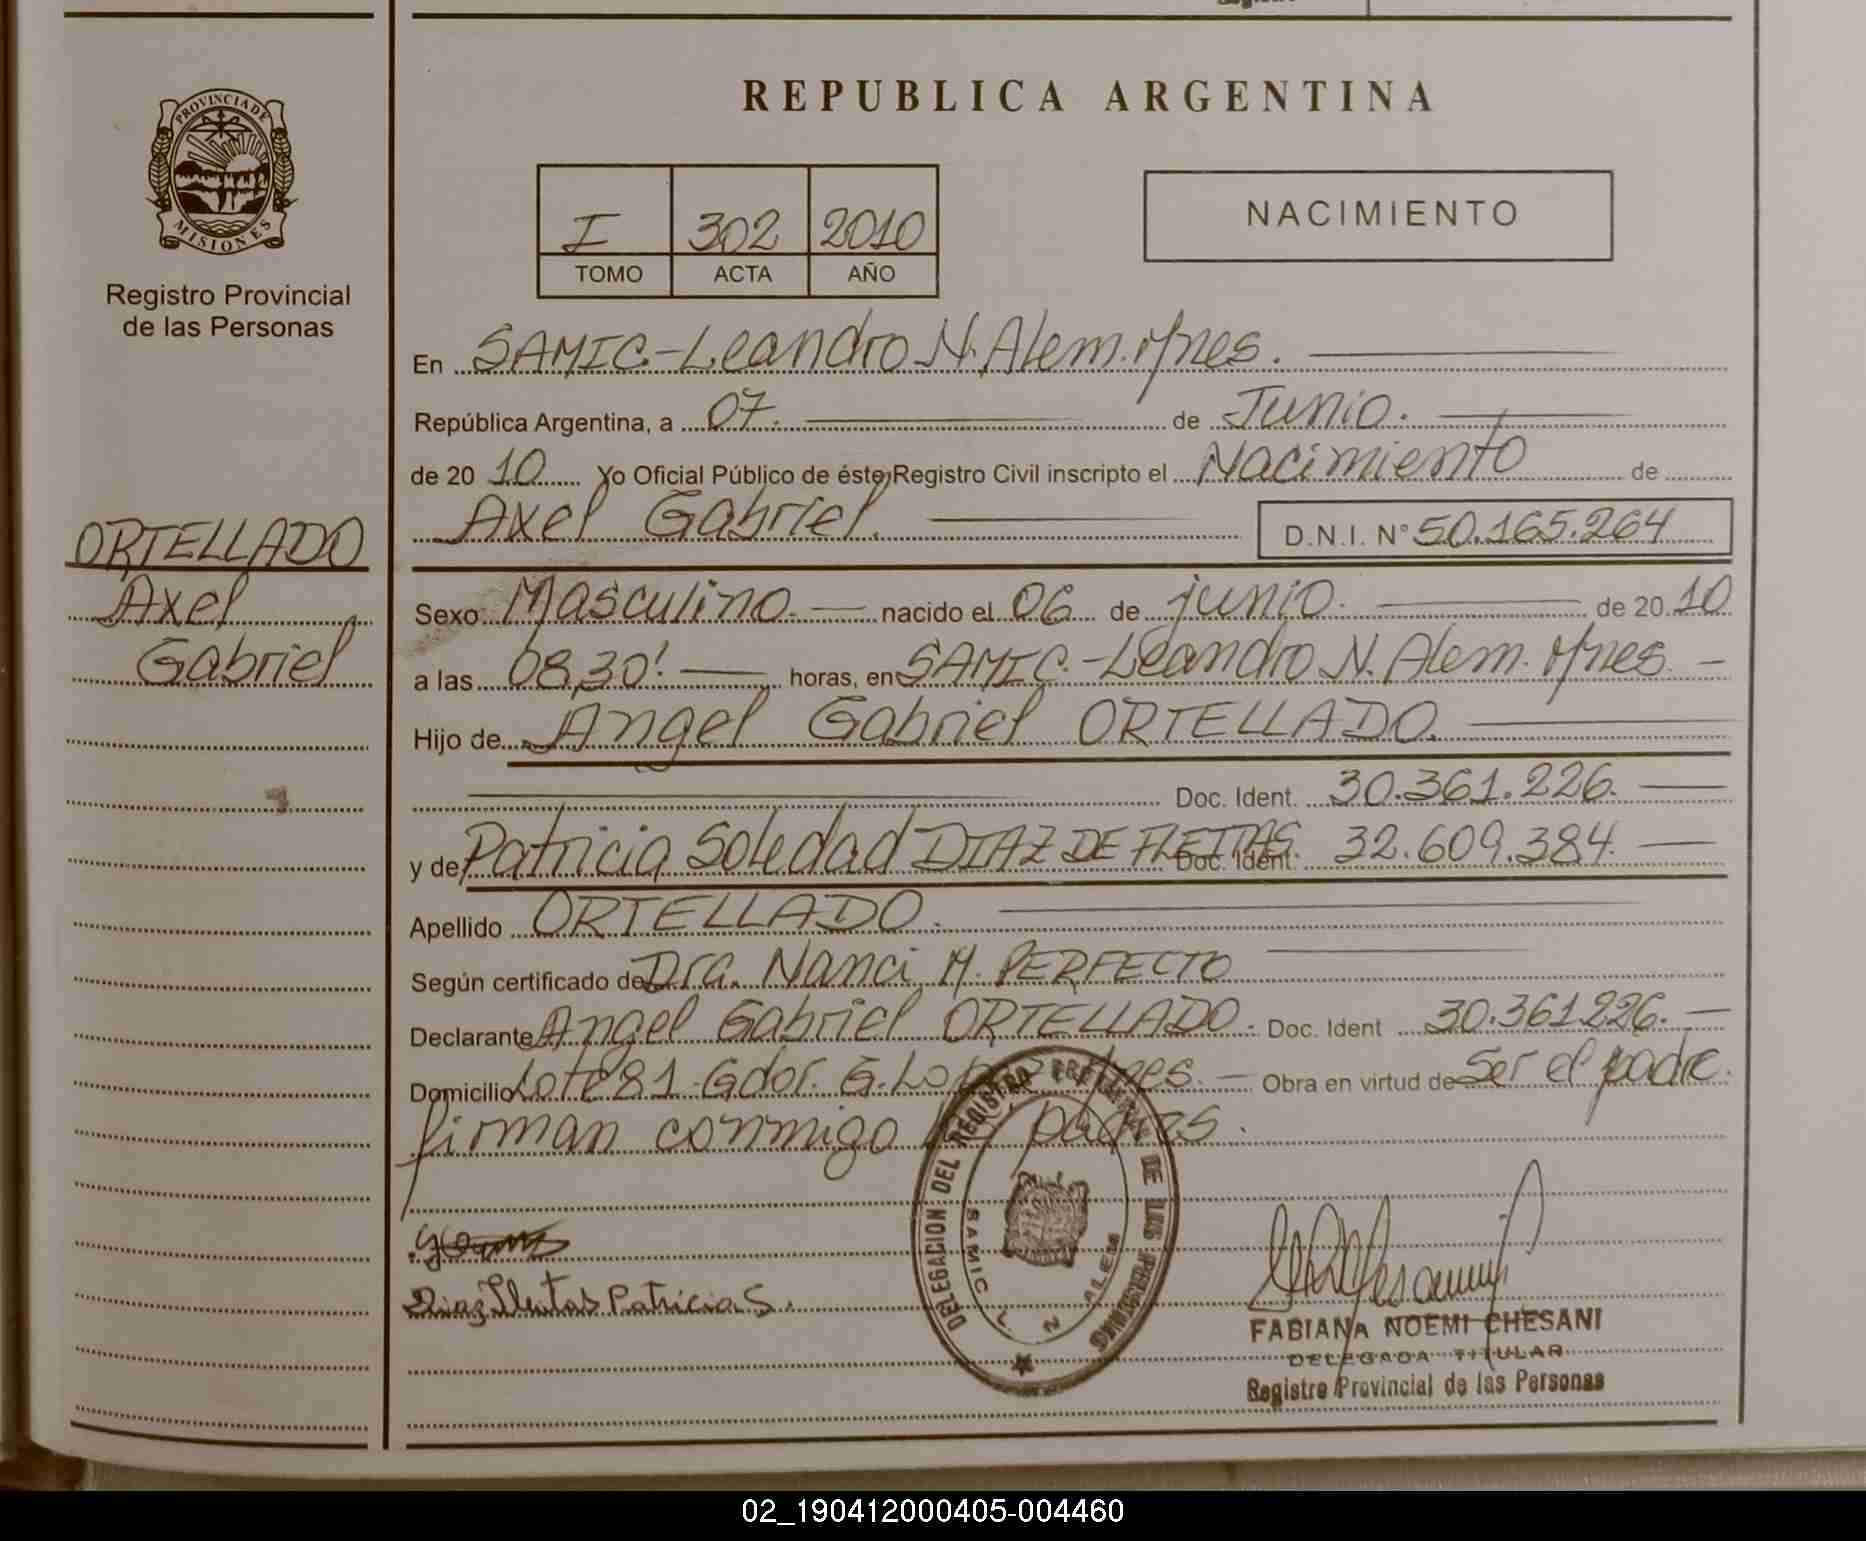 REPUBLICA ARGENTINA
PROVINCIA DE MISIONES
Registro Provincial
de las Personas
I 302 2010
TOMO ACTA AÑO
NACIMIENTO
En SAMIC.-Leandro N. Alem. Mnes.
República Argentina, a 07. de Junio.
de 20 10 Yo Oficial Público de éste Registro Civil inscripto el Nacimiento de
Axel Gabriel. D.N.I. N° 50.165.264
ORTELLADO
Axel
Gabriel
Sexo Masculino. nacido el 06 de junio. de 20 10
a las 08,30! horas, en SAMIC.-Leandro N. Alem. Mnes. -
Hijo de Angel Gabriel ORTELLADO.
Doc. Ident. 30.361.226.
y de Patricia Soledad DIAZ DE FLEITAS Doc. Ident. 32.609.384.
Apellido ORTELLADO.
Según certificado de Dra. Nanci M. PERFECTO
Declarante Angel Gabriel ORTELLADO. Doc. Ident 30.361226. -
Domicilio Lote 81. Gdor. G. Mnes. - Obra en virtud de Ser el padre.
firman conmigo padres.
DELEGACION DEL REGISTRO PROVINCIAL DE LAS PERSONAS
SAMIC L N ALEM
Diaz Fleitas Patricia S.
FABIANA NOEMI CHESANI
DELEGADA TITULAR
Registro Provincial de las Personas
02_190412000405-004460